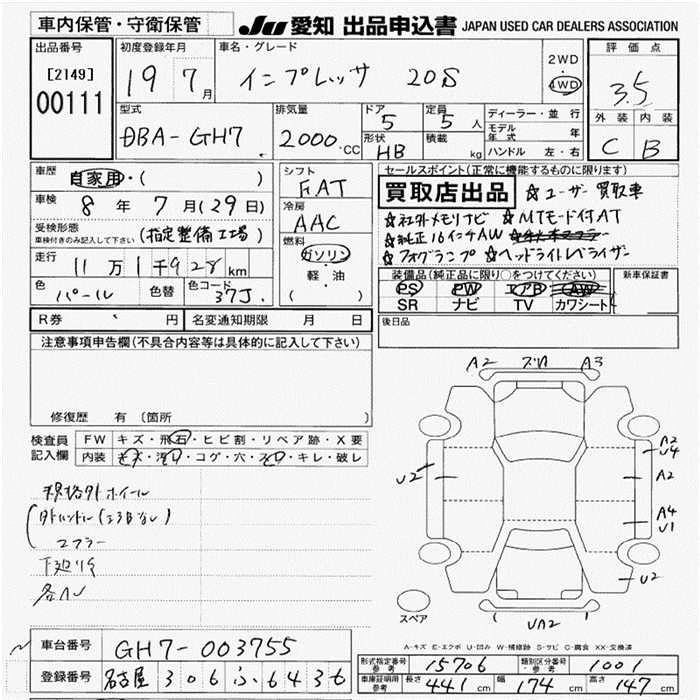 車内保管・守衛保管 JU 愛知 出品申込書 JAPAN USED CAR DEALERS ASSOCIATION
出品番号 [2149] 00111
初度登録年月 19 7月
車名・グレード インプレッサ 20S
2WD・4WD
評価点 3.5
外装 内装
C B
型式 DBA-GH7
排気量 2000.CC
ドア 5 形状 HB
定員 5人 積載 kg
ディーラー・並行
モデル年式 年
ハンドル 左・右
車歴 自家用・( )
車検 8年 7月(29日)
受検形態 車検付きのみ記入して下さい (指定整備工場)
走行 11万1千928km
色 パール 色替 色コード 37J.
シフト FAT
冷房 AAC
燃料 ガソリン 軽・油 ( )
セールスポイント(正常に機能するものに限ります)
買取店出品 ☆ユーザー買取車
☆社外メモリナビ ☆MTモード付AT
☆純正16インチAW
☆フォグランプ ☆ヘッドライトレベライザー
装備品(純正品に限り○をつけてください) 新車保証書
PS PW エアB AW
SR ナビ TV カワシート
後日品
R券 円 名変通知期限 月 日
注意事項申告欄(不具合内容等は具体的に記入して下さい)
修復歴 有 (箇所 )
検査員記入欄
FW キズ・飛石・ヒビ割・リペア跡・X要
内装 キズ・汚レ・コゲ・穴・スレ・キレ・破レ
規格外ホイール
マフラー
下廻りサ
各AU
A2 ズA A3
A2
U4
U2 A2
A4
U1
U2
UA2
スペア
A-キズ E-エクボ U-凹み W-補修跡 S-サビ C-腐食 XX-交換済
車台番号 GH7-003755
登録番号 名古屋 306 ふ 6436
形式指定番号 参考 15706 類別区分番号 参考 1001
車庫証明用 参考 長さ 441cm 幅 174cm 高さ 147cm